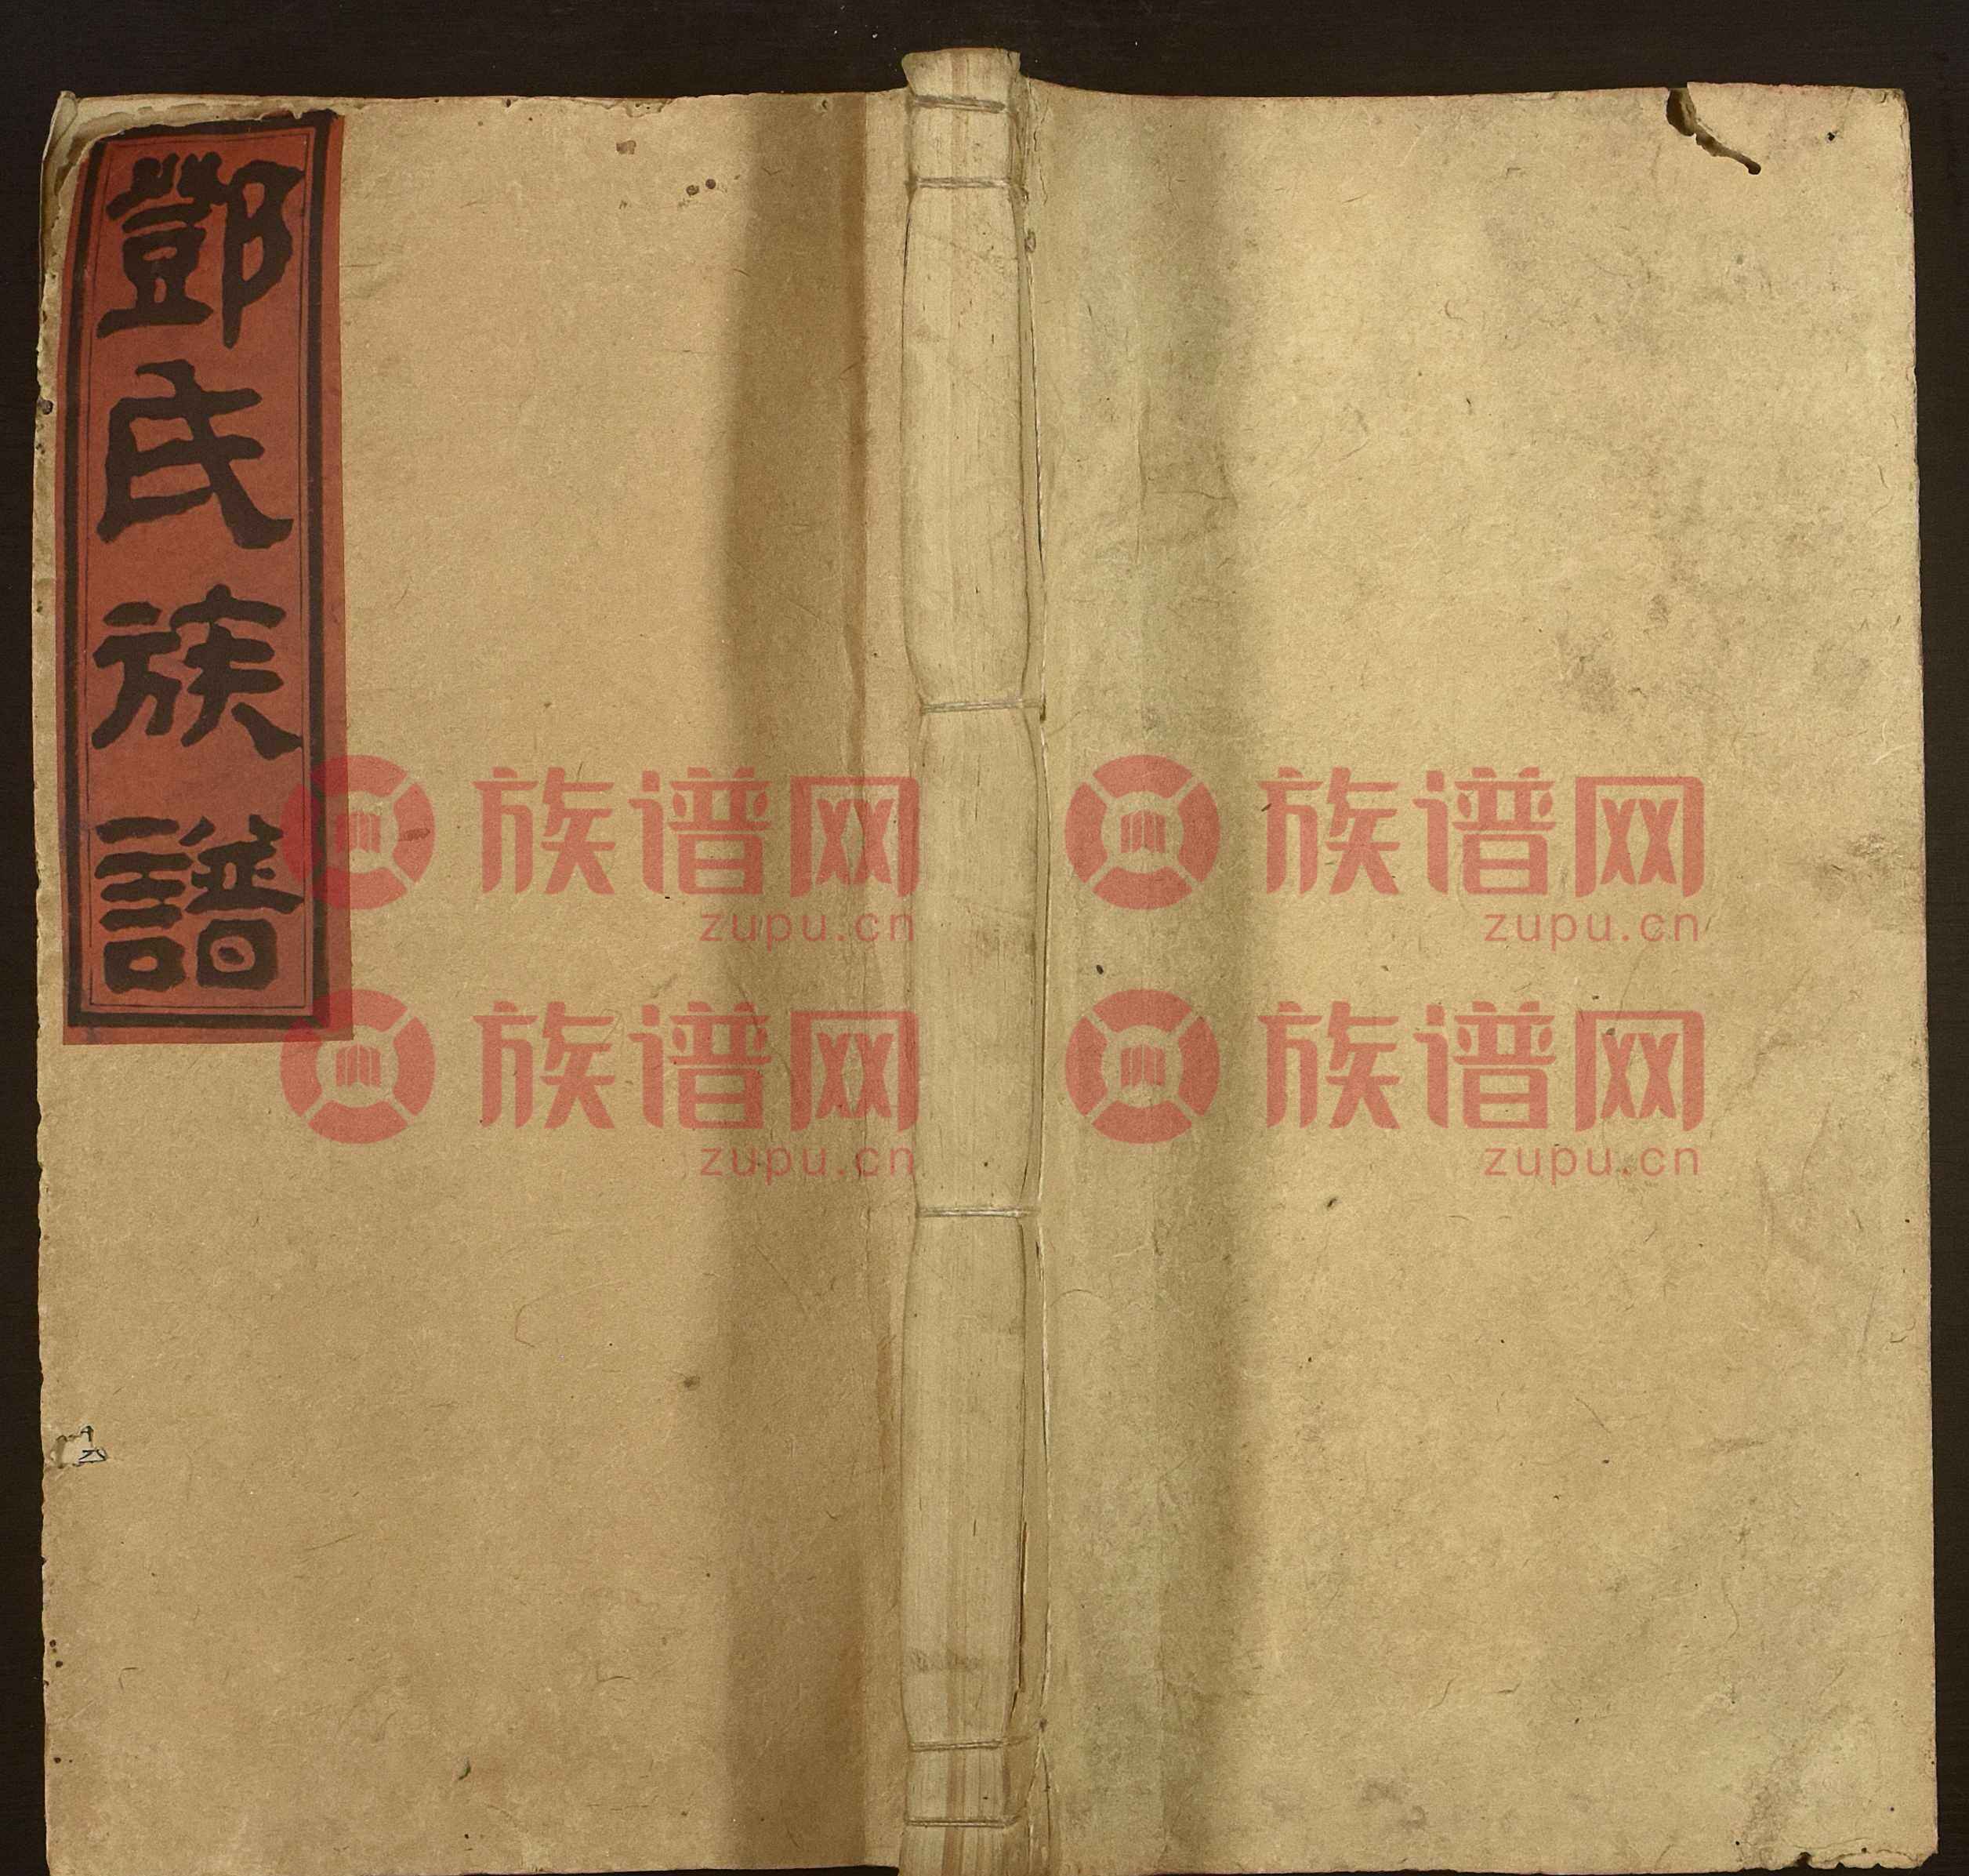 鄧氏族譜
族谱网
zupu.cn
族谱网
zupu.cn
族谱网
zupu.cn
族谱网
zupu.cn